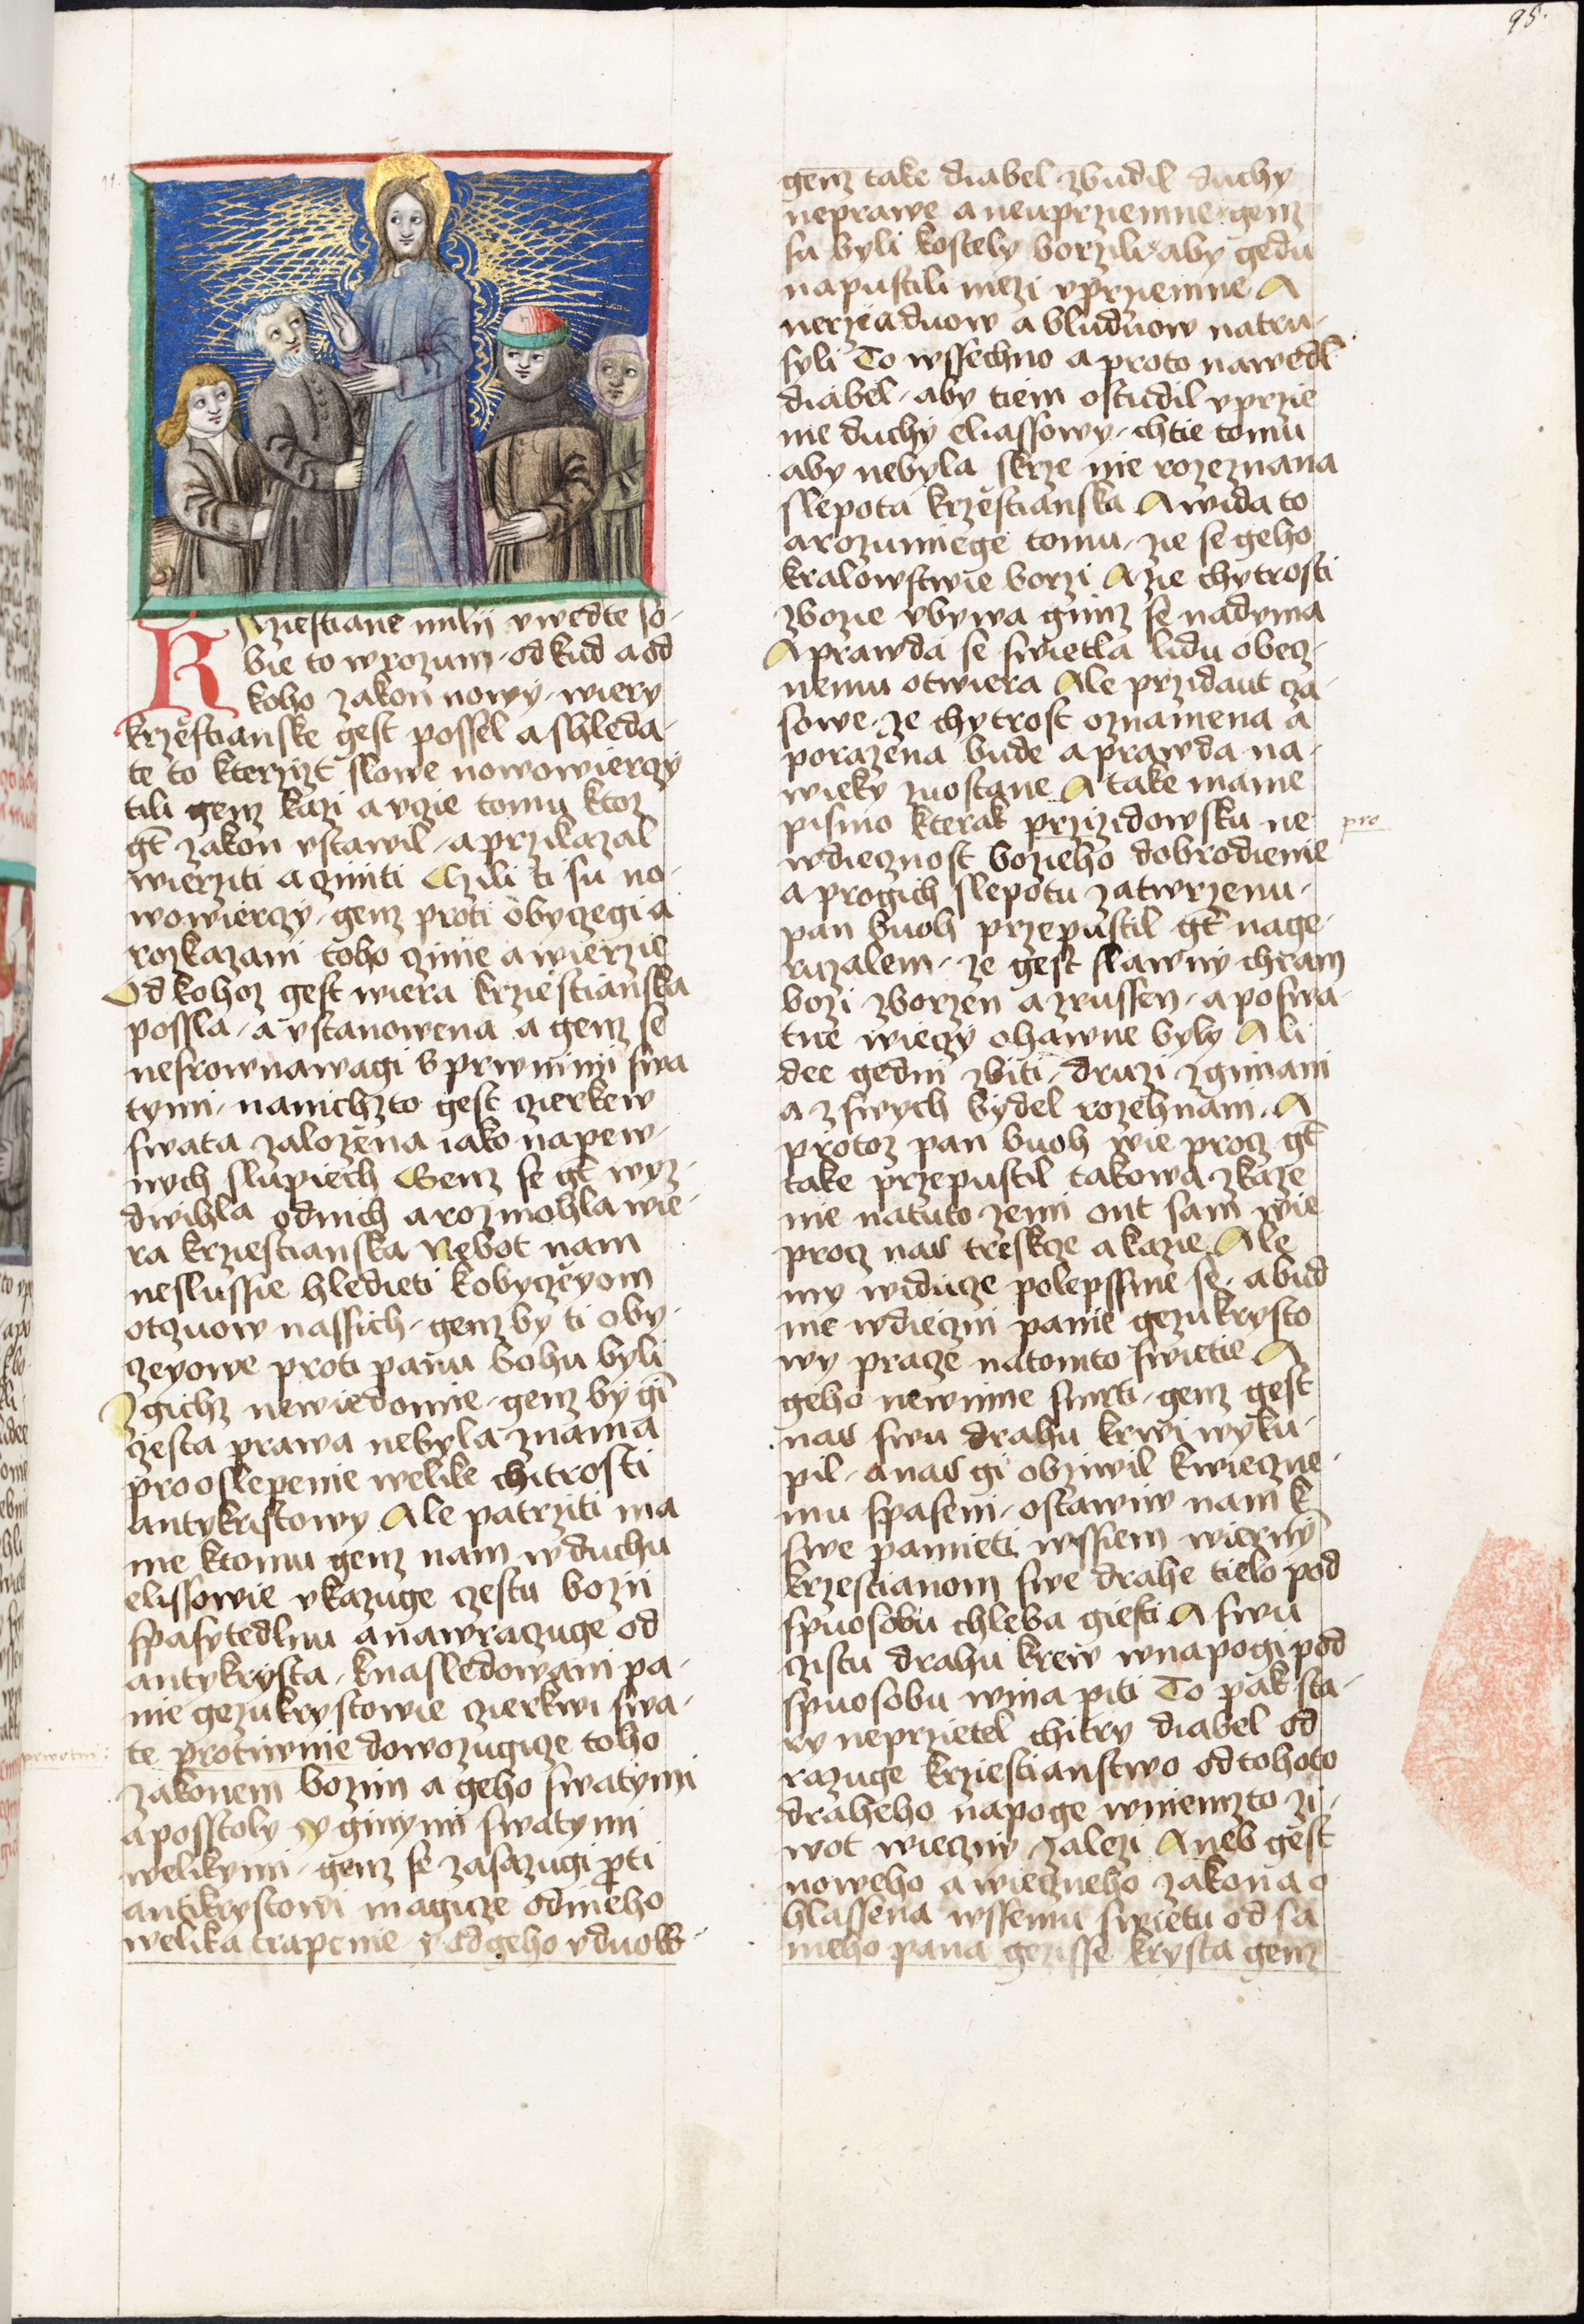 95.
Krziestiane milij vwedte so-
bie to wrozum od kud a od
koho zakon nowy wiery
krzestianske gest possel a shleda-
te to kterzizt slowe nowowierczy
tili genz kazi a vczie tomu ktoz
gt zakon vstawil a przikazal
wierziti a cziniti Czili ti su no-
wowierczy genz proti obyczegi a
rozkazani toho czinie a wierzie
Od kohoz gest wiera krziestianska
possla a vstanowena a genz se
nesrownawagi s prwnimi swa
tymi nanichzto gest czierkew
swata zalozena iako na pew-
nych slupiech Genz se gt wyz-
dwihla od nich a rozmohla wie-
ra krziestianska Nebot nam
neslussie hledieti kobyczeyom
otczuow nassich genz by ti oby-
czeyowe proti panu bohu byli
Z gichz newiedomie genz by gi
czesta prawa nebyla znama
pro oslepenie welike chitrosti
antykristowy Ale patrziti ma
me ktomu genz nam w duchu
elissowie vkazuge czestu bozij
spasytedlnu a nawraczuge od
antykrysta knasledowani pa-
nie gezukrystowie czierkwi swa-
te protiwnie dowozugicze toho
zakonem bozim a geho swatymi
aposstoly y ginymi swatymi
welikymi genz se zasazugi proti
antikrystowi magicze od nieho
welika trapenie y od geho vduow
genz take diabel zbudil duchy
neprawe a neuprziemne genz
su byli kostely borzili aby gedu
napustili mezi vprziemne A
nerzaduow a bluduow natru-
syli To wssechno a proto nawedl
diabel aby tiem ostudil vprzie
me duchy eliassowy chtie tomu
aby nebyla skrze nie rozeznana
slepota krzestianska A wida to
a rozumiege tomu ze se geho
kralowstwie borzi A zie chytrosti
zbozie vbywa gimz se nadyma
A prawda se swietla lidu obecz-
nemu otwiera Ale przidaut cza-
sowe ze chytrost oznamena a
porazena bude a prawda na-
wieky zuostane A take mame
pismo kterak przizidowsku ne pro
wdiecznost bozieho dobrodienie
a progich slepotu zatwrzenu
pan buoh przepustil gt nage-
ruzalem ze gest slawny chram
bozi zborzen a zrussen a poswa-
tne wieczy ohawne byly A li
dee gedni zbiti druzi zgimani
a z swych bydel rozehnani A
protoz pan buoh wie procz gt
take przepustil takowa zkaze
nie natuto zemi ont sam wie
procz nas tresksze a kazie Ale
my widucze polepssme se a bud
me wdieczni panie gezukrysto
wy pracze natomto swietie A
geho newinne smrti genz gest
nas swu drahu krwi wyku-
pil a nas gi obziwil kwieczne-
mu spaseni ostawiw nam k
swe pamieti wssiem wierny
krzestianom swe drahe tielo pod
spuosobu chleba giesti A swu
czistu drahu krew wnapogi pod
spuosobu wina piti To pak sta-
ry neprzietel chitry diabel od
razuge krziestianstwo od tohoto
draheho napoge wniemzto zi-
wot wieczny zalezi A neb gest
noweho a wieczneho zakona o
hlassena wssemu swietu od sa
meho pana gezisse krysta genz